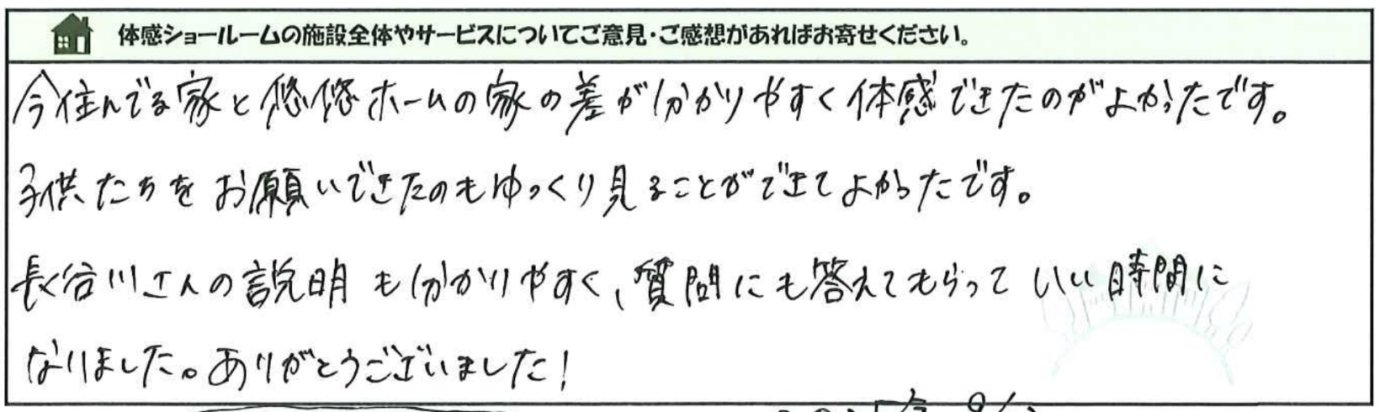 体感ショールームの施設全体やサービスについてご意見・ご感想があればお寄せください。
今住んでる家と悠悠ホームの家の差が分かりやすく体感できたのがよかったです。
子供たちをお願いできたのもゆっくり見ることができてよかったです。
長谷川さんの説明も分かりやすく、質問にも答えてもらっていい時間に
なりました。ありがとうございました!